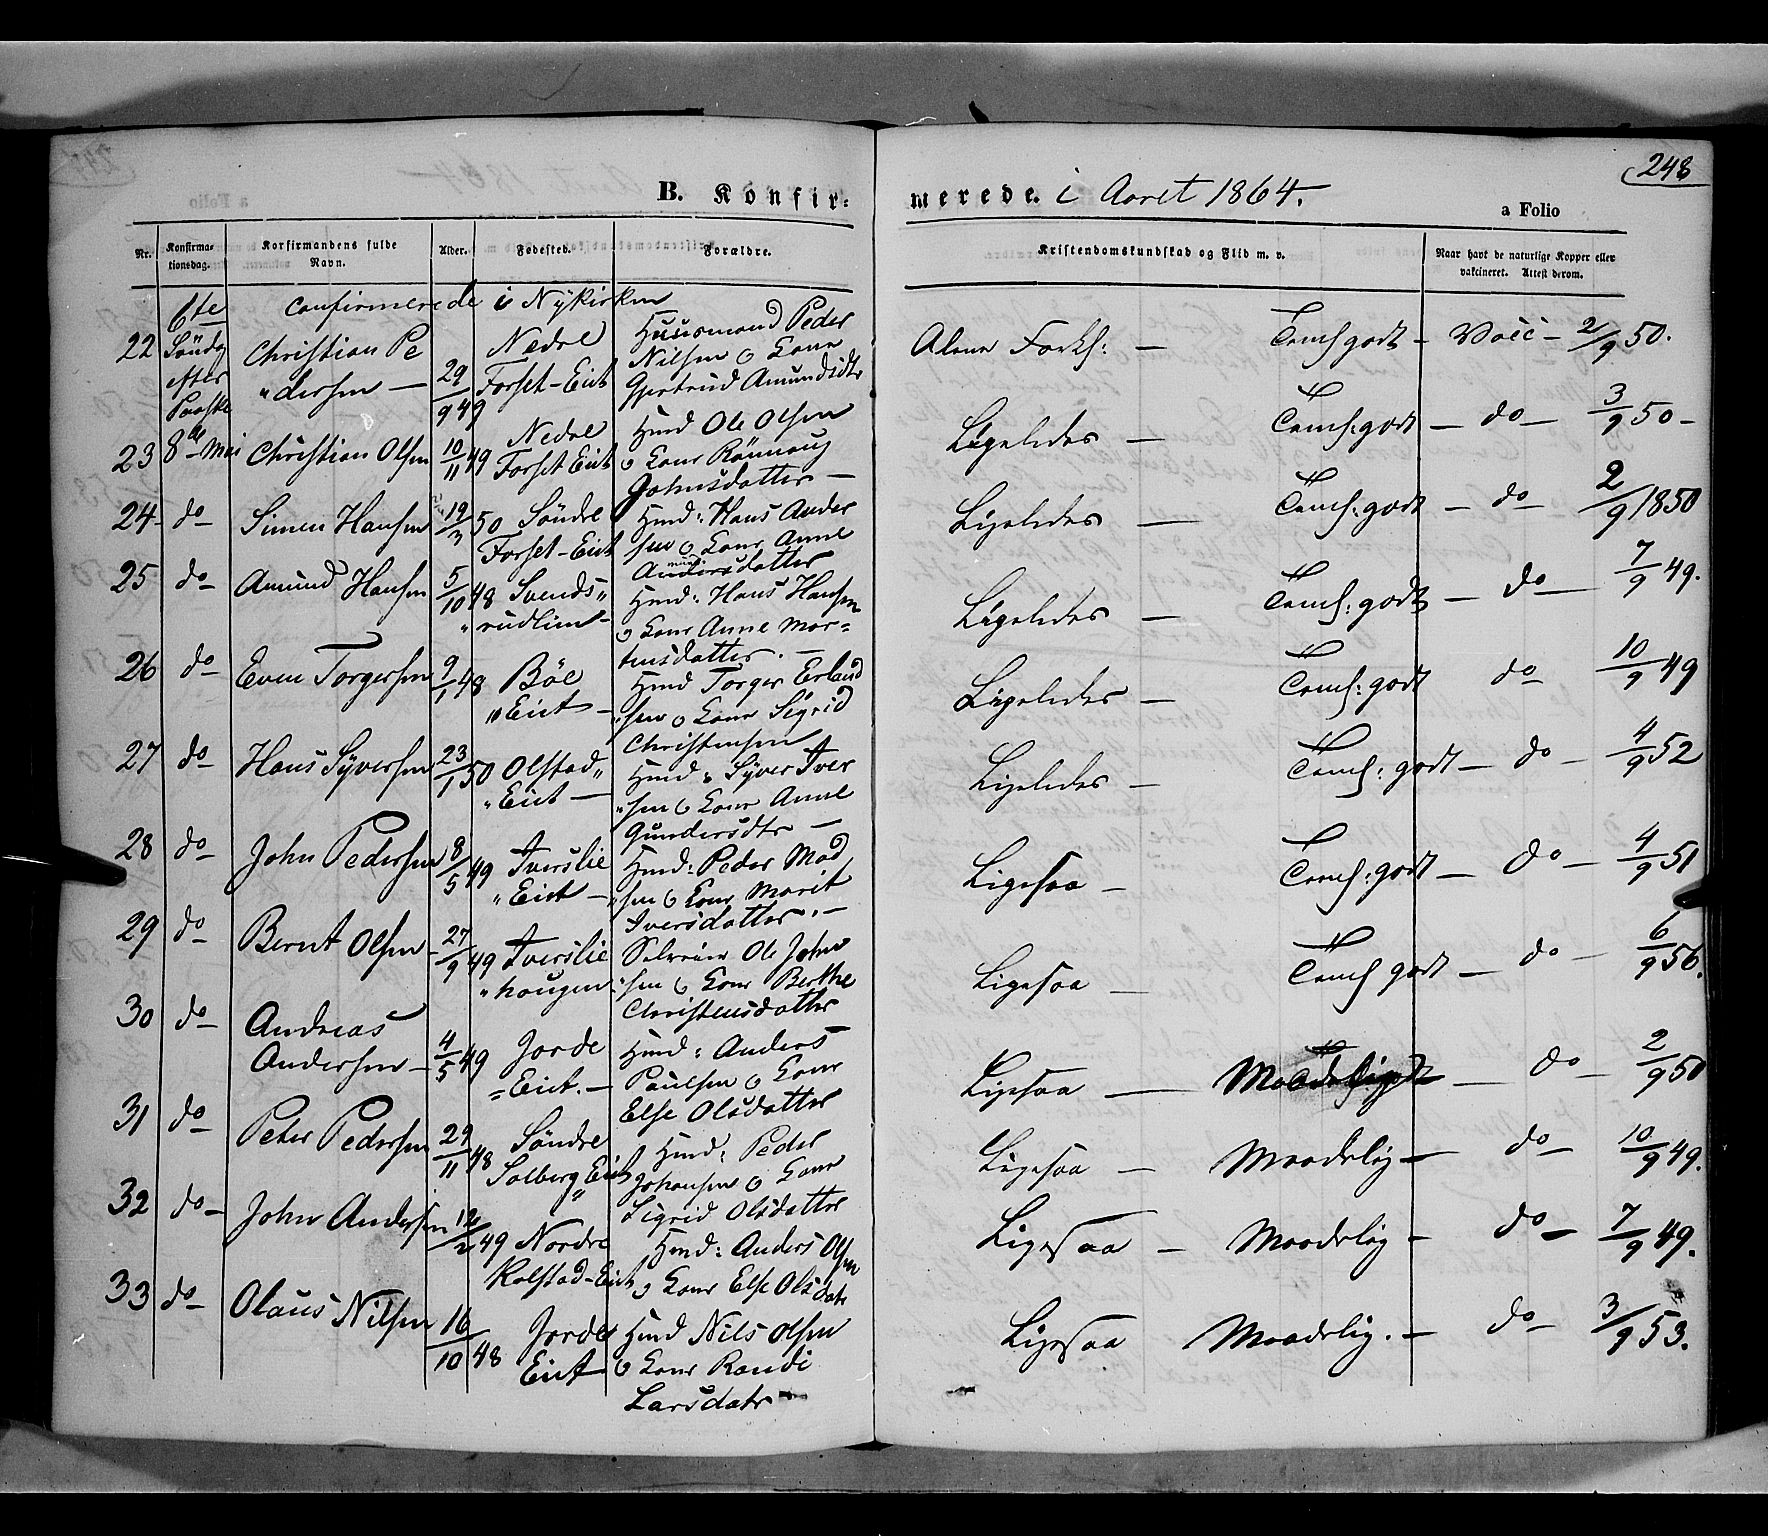 248
B. Konfir=
merede. i Aaret 1864.
a Folio
Nr.
Konfirma-
tionsdag.
Konfirmandens fulde
Navn.
Alder.
Fødested.
Forældre.
Kristendomskundskab og Flid m. v.
Naar havt de naturlige Kopper eller
vakcineret. Attest derom.
confirmerede i Nykirken
22 6te Søndag efter Paaske
Christian Pe
"dersen — 29/9 49
Nedre
Forset-Eiet
Huusmand Peder
Nilsen o Kone
Gjertrud Amundsdtr
Alene Forkl: — Temf godt — Vacc — 2/9 50.
23 8de Mai Christian Olsen 10/11 49
Nedre
Forset Eiet
Hmd Ole Olsen
o Kone Rønnaug
Johnsdatter —
Ligeledes — Temf: godt — do — 3/9 50 —
24 do Simen Hansen 19/3 50
Søndre
Forset-Eiet
Hmd: Hans Ander
sen o Kone Anne
datter
Ligeledes — Temf: godt — do — 2/9 1850
25 do Amund Hansen 5/10 48
Svends"
"rudlien —
Hmd: Hans Hansen
o Kone Anne Mor=
tensdatter. —
Ligeledes — Temf: godt — do — 7/9 49.
26 do Even Torgersen 9/1 48
Böe
"Eiet —
Hmd Torger Erland
"sen o Kone Sigrid
Christensen
Ligeledes — Temf: godt do 10/9 49
27 do Hans Syversen 23/1 50
Olstad"
"Eiet —
Hmd: Syver Iver
"sen o Kone Anne
Gundersdtr —
Ligeledes — Temf: godt — do — 4/9 52
28 do John Pedersen 8/5 49
Iverslie
"Eiet —
Hmd: Peder Mad
"sen o Kone Marit
Iversdatter. —
Ligesaa — Temf: godt — do — 4/9 51
29 do Bernt Olsen — 27/9 49
Iverslie
"haugen
Selveier Ole John
"sen o Kone Berthe
Christensdatter
Ligesaa — Temf godt — do — 6/9 56.
30 do Andreas
Andersen — 4/5 49
Jorde
=Eiet. —
Hmd: Anders
Paulsen o Kone
Else Olsdatter
Ligesaa — Maadelig — do — 2/9 50
31 do Peter Pedersen 29/11 48
Søndre
Solberg Eiet
Hmd: Peder
Johansen o Kone
Sigrid Olsdatter
Ligesaa — Maadelig — do — 10/9 49.
32 do John Andersen 12/2 49
Nordre
Kolstad-Eiet
Hmd: Anders Olsen
o Kone Else Olsdatr
Ligesaa — Maadelig — do — 7/9 49.
33 do Olaus Nilsen 16/10 48
Jorde
Eiet
Hmd Nils Olsen
o Kone Randi
Larsdatr
Ligesaa Maadelig. — do — 3/9 53.